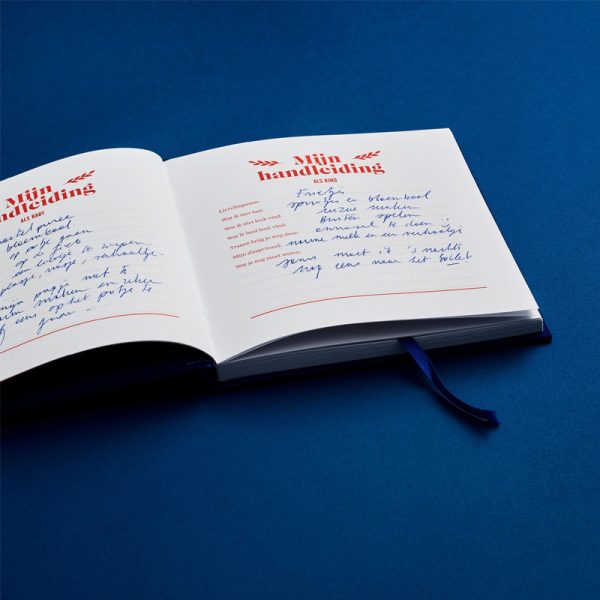 Mijn
handleiding
ALS BABY
bloemkool
op potje gaan
op de fiets
een liedje te zingen
mijn papje met te
maken en zeker
eens op het potje te
gaan
Mijn
handleiding
ALS KIND
Lievelingseten: Frietjes
Wat ik niet lust: spruitjes en bloemkool
Wat ik niet leuk vind: ruzie maken
Wat ik heel leuk vind: Buiten spelen
Tranen krijg je weg door: onnozel te doen :)
Mijn slaapritueel: warme melk en een verhaaltje
Wat je nog moet weten: Soms moet ik 's nachts
nog eens naar het toilet